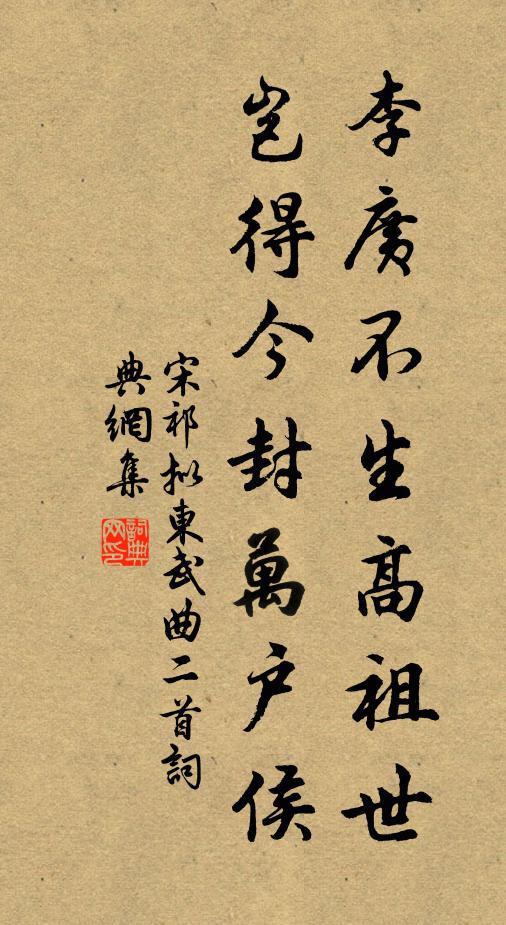 李廣不生高祖世
豈得今封萬户侯
宋祁拟東武曲二首詞
典網集
詞典網印